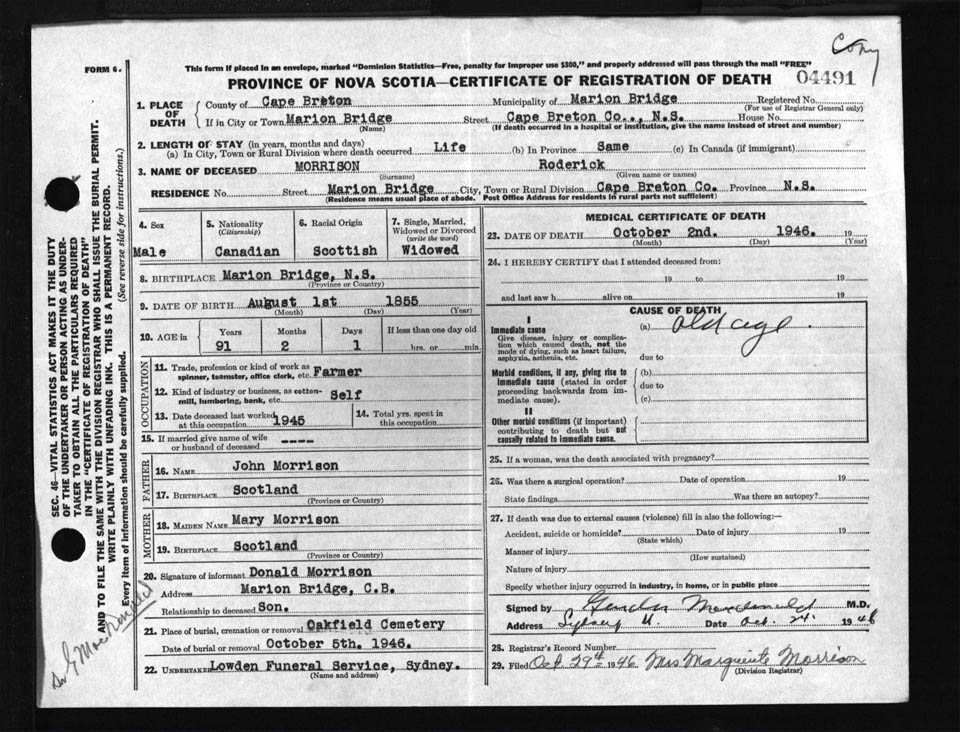 Copy
FORM 6.
This form if placed in an envelope, marked "Dominion Statistics—Free, penalty for improper use $300," and properly addressed will pass through the mail "FREE"
PROVINCE OF NOVA SCOTIA—CERTIFICATE OF REGISTRATION OF DEATH 04491
1. PLACE OF DEATH
County of Cape Breton Municipality of Marion Bridge Registered No.
(For use of Registrar General only)
If in City or Town Marion Bridge Street Cape Breton Co.., N.S. House No.
(Name) (If death occurred in a hospital or institution, give the name instead of street and number)
2. LENGTH OF STAY (in years, months and days)
(a) In City, Town or Rural Division where death occurred Life (b) In Province Same (c) In Canada (if immigrant)
3. NAME OF DECEASED MORRISON Roderick
(Surname) (Given name or names)
RESIDENCE No. Street Marion Bridge City, Town or Rural Division Cape Breton Co. Province N.S.
(Residence means usual place of abode. Post Office Address for residents in rural parts not sufficient)
4. Sex
Male
5. Nationality
(Citizenship)
Canadian
6. Racial Origin
Scottish
7. Single, Married, Widowed or Divorced
(write the word)
Widowed
8. BIRTHPLACE Marion Bridge, N.S.
(Province or Country)
9. DATE OF BIRTH August 1st 1855
(Month) (Day) (Year)
10. AGE in
Years Months Days If less than one day old
91 2 1 hrs. or min.
OCCUPATION
11. Trade, profession or kind of work as
spinner, teamster, office clerk, etc. Farmer
12. Kind of industry or business, as cotton-
mill, lumbering, bank, etc. Self
13. Date deceased last worked
at this occupation 1945
14. Total yrs. spent in
this occupation
15. If married give name of wife
or husband of deceased ----
FATHER
16. NAME John Morrison
17. BIRTHPLACE Scotland
(Province or Country)
MOTHER
18. MAIDEN NAME Mary Morrison
19. BIRTHPLACE Scotland
(Province or Country)
20. Signature of informant Donald Morrison
Address Marion Bridge, C.B.
Relationship to deceased Son.
21. Place of burial, cremation or removal Oakfield Cemetery
Date of burial or removal October 5th. 1946.
22. UNDERTAKER Lowden Funeral Service, Sydney.
(Name and address)
MEDICAL CERTIFICATE OF DEATH
23. DATE OF DEATH October 2nd. 1946. 19
(Month) (Day) (Year)
24. I HEREBY CERTIFY that I attended deceased from:
19 to 19
and last saw h alive on 19
CAUSE OF DEATH
I
Immediate cause
Give disease, injury or complica-
tion which caused death, not the
mode of dying, such as heart failure,
asphyxia, asthenia, etc.
(a) old age
due to
Morbid conditions, if any, giving rise to
immediate cause (stated in order
proceeding backwards from im-
mediate cause).
(b)
due to
(c)
II
Other morbid conditions (if important)
contributing to death but not
causally related to immediate cause.
25. If a woman, was the death associated with pregnancy?
26. Was there a surgical operation? Date of operation 19
State findings Was there an autopsy?
27. If death was due to external causes (violence) fill in also the following:—
Accident, suicide or homicide? Date of injury 19
(State which)
Manner of injury
(How sustained)
Nature of injury
Specify whether injury occurred in industry, in home, or in public place
Signed by Macdonald M.D.
Address Sydney Date Oct. 24. 1946
28. Registrar's Record Number
29. Filed Oct. 29th 1946 Mrs Marguerite Morrison
(Division Registrar)
SEC. 46—VITAL STATISTICS ACT MAKES IT THE DUTY
OF THE UNDERTAKER OR PERSON ACTING AS UNDER-
TAKER TO OBTAIN ALL THE PARTICULARS REQUIRED
IN THE "CERTIFICATE OF REGISTRATION OF DEATH"
AND TO FILE THE SAME WITH THE DIVISION REGISTRAR WHO SHALL ISSUE THE BURIAL PERMIT.
WRITE PLAINLY WITH UNFADING INK. THIS IS A PERMANENT RECORD.
Every item of information should be carefully supplied. (See reverse side for instructions.)
Dr G MacDonald